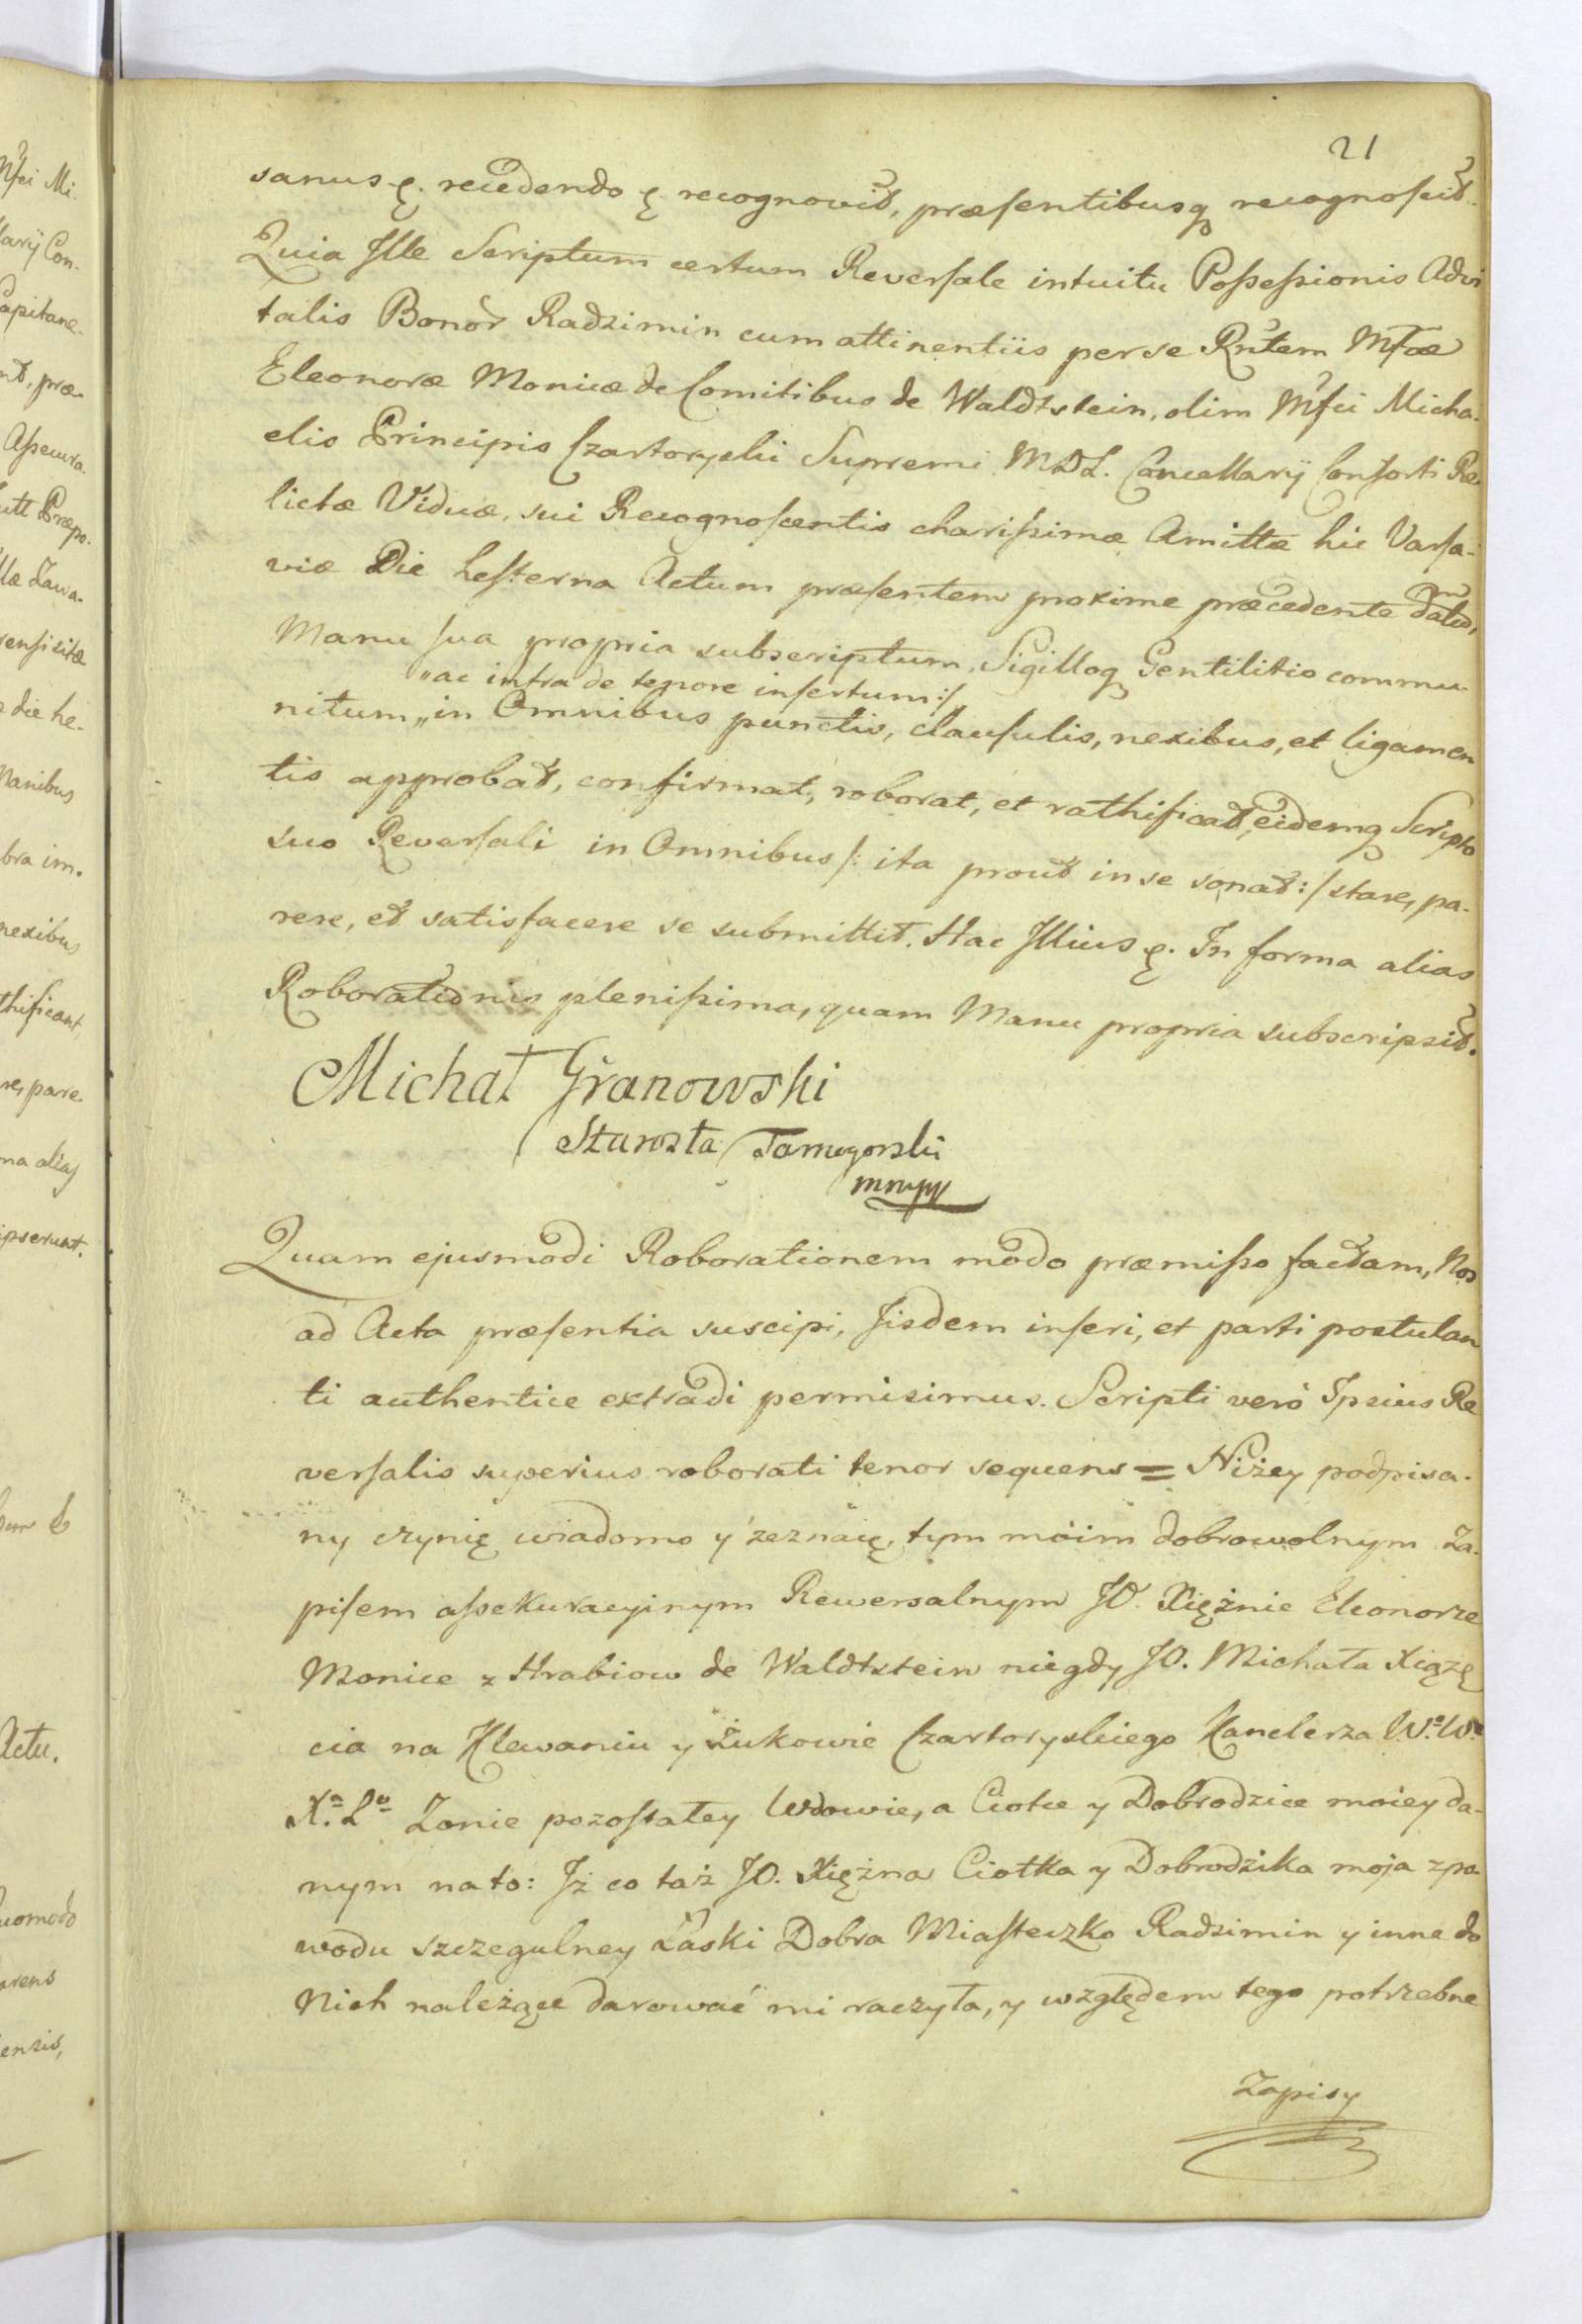 21
sanus ę. recedendo ę. recognovit, præsentibusq recognoscit.
Quia Ille Scriptum certum Reversale intuitu Possessionis Advi
talis Bonor Radzimin cum attinentiis per se Rntem Mfcæ
Eleonoræ Monicæ de Comitibus de Waldtstein, olim Mfci Micha-
elis Principis Czartoryski Supremi M.D.L. Cancellarÿ Consorti Re
lictæ Viduæ, sui Recognoscentis charissimæ Amittæ hic Varsa-
viæ Die hesterna Actum præsentem proxime præcedente datum,
Manu sua propria subscriptum, Sigilloq Gentilitio commu-
„ac intra de tepore insertum:/
nitum„ in Omnibus punctis, clausulis, nexibus, et ligamen
tis approbat, confirmat, roborat, et rathificat, eidemq Scripto
suo Reversali in Omnibus /: ita prout in se sonat :/ stare, pa-
rere, et satisfacere se submittit. Hac Illius ę. In forma alias
Roborationis plenissima, quam Manu propria subscripsit.
Michał Granowski
Starosta Tarnogorski
mmpp
Quam ejusmodi Roborationem modo præmisso factam, Nos
ad Acta præsentia suscipi, Iisdem inseri, et parti postulan
ti authentice extradi permisimus. Scripti verò Ipsius Re
versalis superius roborati tenor sequens = Niżey podpisa-
ny czynię wiadomo y zeznaię, tym moim dobrowolnym Za-
pisem assekuracyinym Rewersalnym JO. Xiężnie Eleonorze
Monice z Hrabiow de Waldtstein niegdy JO. Michała Xiążę
cia na Klewaniu y Żukowie Czartoryskiego Kanclerza W.º W.º
X.ª L.º Zonie pozostałey Wdowie, a Ciotce y Dobrodzice moiey da-
nym na to: Iż co taż JO. Xiężna Ciotka y Dobrodzika moja z po-
wodu szczegulney Łaski Dobra Miasteczko Radzimin y inne do
Nich należące darować mi raczyła, y względem tego potrzebne
Zapisy